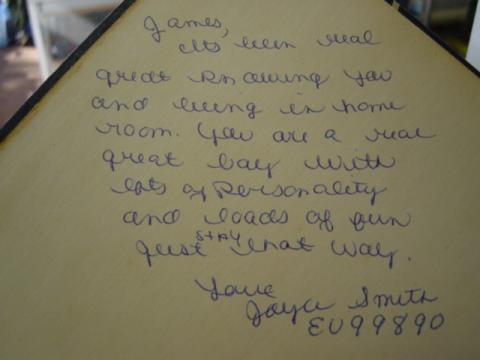 James,
Its been real
great knowing you
and being in home
room. You are a real
great boy with
lots of personality
and loads of fun
just stay that way.
Love
Joyce Smith
EV99890